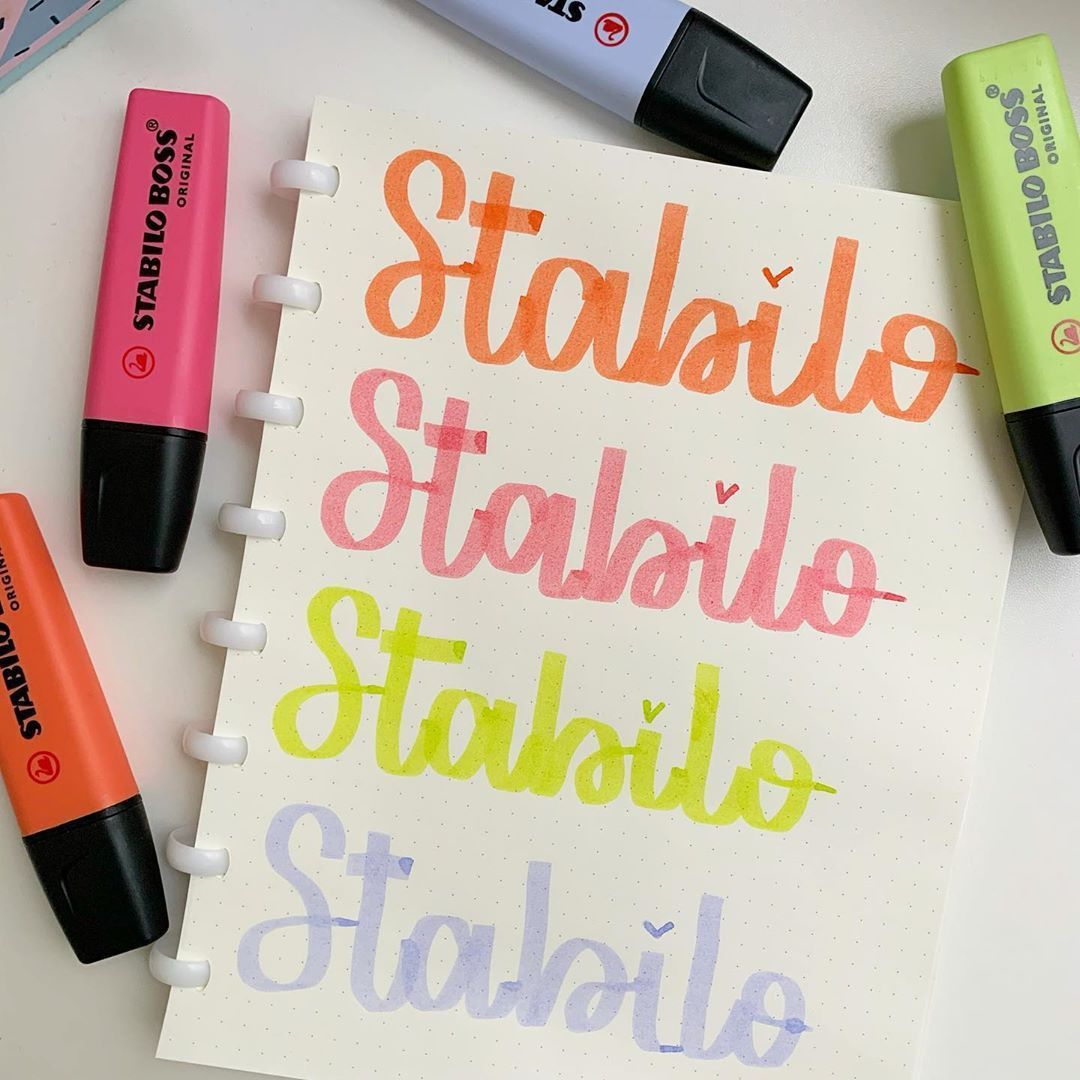 STABILO BOSS®
ORIGINAL
STABILO BOSS®
ORIGINAL
STABILO
Stabilo
Stabilo
Stabilo
Stabilo